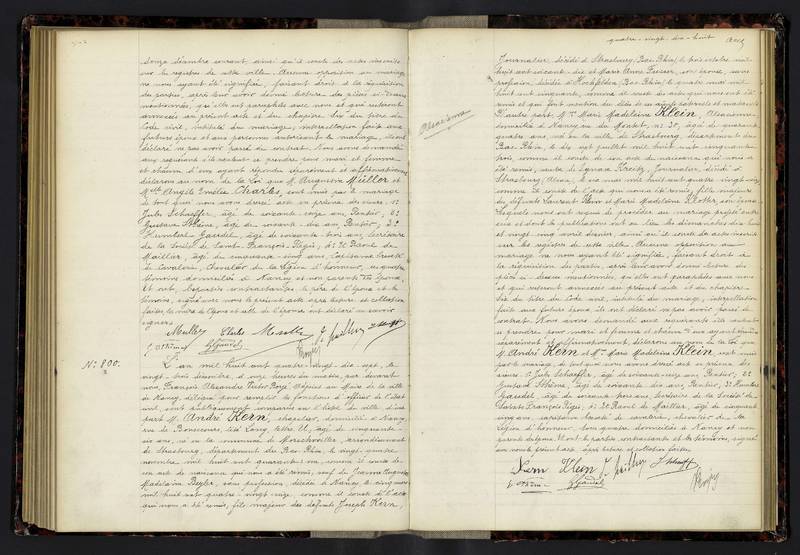 onze décembre courant, ainsi qu'il conste des actes inscrits
sur les registres de cette ville. Aucune opposition au mariage
ne nous ayant été signifiée, faisant droit à la réquisition
des parties, après leur avoir donné lecture des pièces ci-dessus
mentionnées, qu'elles ont paraphées avec nous et qui resteront
annexées au présent acte et du chapitre Six du titre du
Code civil, intitulé du mariage, interpellation faite aux
futurs époux et à la personne autorisant le mariage, ils ont
déclaré ne pas avoir passé de contrat. Nous avons demandé
aux requérants s'ils veulent se prendre pour mari et femme
et chacun d'eux ayant répondu séparément et affirmativement,
déclarons au nom de la loi que M. Augustin Müller et
Mlle Angèle Emélie Charles, sont unis par le mariage
de tout quoi nous avons dressé acte en présence des sieurs: 1°
Jules Schaeffer, âgé de soixante-onze ans, Rentier, 2°
Gustave Sthème, âgé de soixante-dix ans, Rentier, 3°
Humbert Gaudel, âgé de soixante-trois ans, Secrétaire
de la Société de Saint-François-Régis, 4° et Raoul de
Maillier, âgé de cinquante-cinq ans, Capitaine breveté
de cavalerie, Chevalier de la Légion d'honneur, les quatre
témoins domiciliés à Nancy et non parents des époux,
Et ont, les parties contractantes, le père de l'épouse et les
témoins, signé avec nous le présent acte après lecture et collation
faites, la mère de l'époux et celle de l'épouse ont déclaré ne savoir
signer.
Muller Charles
G. Gaudel
N° 800.
L'an mil huit cent quatre-vingt-dix-sept, le
vingt-trois décembre, à onze heures du matin, par devant
nous, François Alexandre Victor Boyé, adjoint au Maire de la ville
de Nancy, délégué pour remplir les fonctions d'officier de l'état
civil, ont publiquement comparu en l'hôtel de ville d'une
part M. André Kern, chapelier, domicilié à Nancy,
rue de Bonsecours, cité Lang, lettre U, âgé de cinquante-
six ans, né en la commune de Morschwiller, arrondissement
de Strasbourg, département du Bas-Rhin, le vingt-quatre
novembre mil huit cent quarante-un, comme il conste de
son acte de naissance qui nous a été remis, veuf de Jeanne Auguste
Madeleine Beyler, sans profession, décédée à Nancy, le cinq mars
mil huit cent quatre-vingt-seize, comme il conste de l'acte
qui nous a été remis, fils majeur des défunts Joseph Kern,
quatre-vingt-dix-huit
Journalier, décédé à Strasbourg (Bas-Rhin), le trois octobre mil
huit cent soixante-dix et Marie Anne Fuerer, son épouse, sans
profession, décédée à Hochfelden (Bas-Rhin), le quatre mai mil
huit cent cinquante, comme il conste des actes qui nous ont été
remis
D'autre part, Mlle Marie Madeleine Klein, Alsacienne,
domiciliée à Nancy, rue du Montet, n° 30, âgée de quarante-
quatre ans, née en la ville de Strasbourg, département du
Bas-Rhin, le dix-sept juillet mil huit cent cinquante-
trois, comme il conste de son acte de naissance qui nous a
été remis, veuve de Ignace Kreitz, Journalier, décédé à
Strasbourg (Alsace), le six mai mil huit cent quatre-vingt-six,
comme il conste de l'acte qui nous a été remis, fille majeure
des défunts Laurent Klein et Marie Madeleine Klotter, son épouse.
Lesquels nous ont requis de procéder au mariage projeté entre
eux et dont les publications ont eu lieu les dimanches dix-huit
et vingt-cinq avril dernier, ainsi qu'il conste des actes inscrits
sur les registres de cette ville. Aucune opposition au
mariage ne nous ayant été signifiée, faisant droit à
la réquisition des parties, après leur avoir donné lecture des
pièces ci-dessus mentionnées, qu'elles ont paraphées avec nous
et qui resteront annexées au présent acte et du chapitre
Six du titre du Code civil, intitulé du mariage, interpellation
faite aux futurs époux, ils ont déclaré ne pas avoir passé de
contrat. Nous avons demandé aux requérants s'ils veulent
se prendre pour mari et femme et chacun d'eux ayant répondu
séparément et affirmativement, déclarons au nom de la loi que
M. André Kern et Mlle Marie Madeleine Klein, sont unis
par le mariage, de tout quoi nous avons dressé acte en présence des
sieurs: 1° Jules Schaeffer, âgé de soixante-onze ans, Rentier, 2°
Gustave Sthème, âgé de soixante-dix ans, Rentier, 3° Humbert
Gaudel, âgé de soixante-trois ans, Secrétaire de la Société de
Saint-François Régis, 4° et Raoul de Maillier, âgé de cinquante-
cinq ans, Capitaine breveté de cavalerie, chevalier de la
Légion d'honneur, tous quatre domiciliés à Nancy et non
parents des époux. Et ont les parties contractantes et les témoins, signé
avec nous le présent acte, après lecture et collation faites.
Kern Klein
G. Gaudel